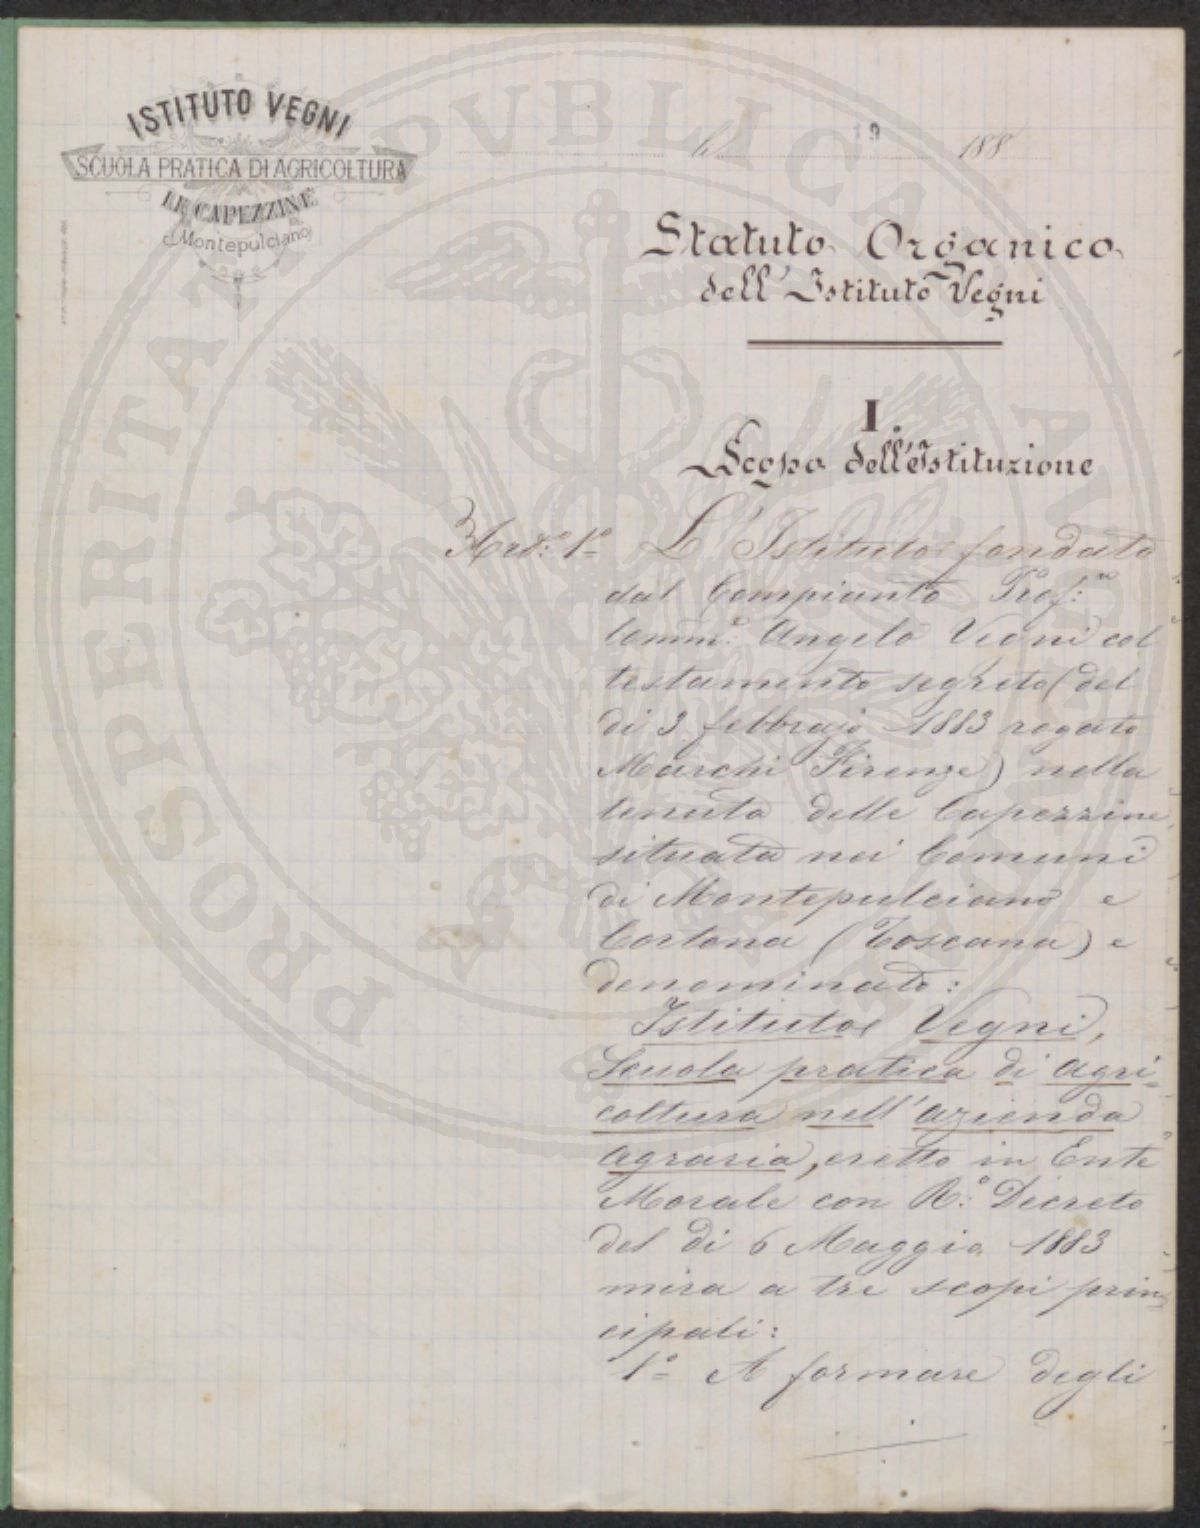 ISTITUTO VEGNI
SCUOLA PRATICA DI AGRICOLTURA
LE CAPEZZINE
(Montepulciano)
li 188
Statuto Organico
dell'Istituto Vegni
I.
Scopo dell'Istituzione
Art.° 1° L'Istituto fondato
dal Compianto Prof:
Comm: Angelo Vegni col
testamento segreto (del
di 3 febbrajo 1883 rogato
Marchi Firenze) nella
tenuta delle Capezzine,
situata nei Comuni
di Montepulciano e
Cortona (Toscana) e
denominato:
Istituto Vegni,
Scuola pratica di Agri-
coltura nell'azienda
agraria, eretto in Ente
Morale con R.° Decreto
del di 6 Maggio 1883
mira a tre scopi prin-
cipali:
1° A formare degli
PROSPERITATI PUBLICAE AUG